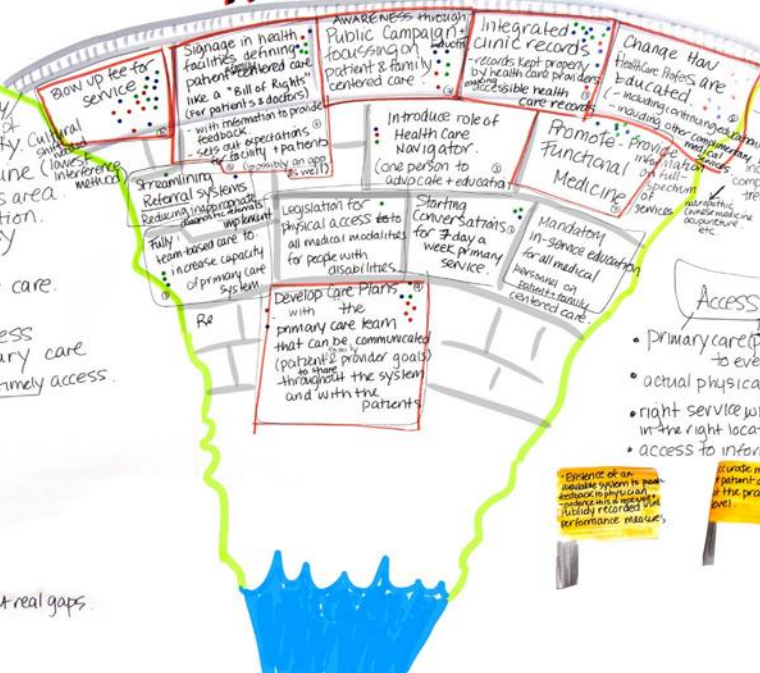 Blow up fee for
service
Signage in health
facilities defining
patient centered care
family
like a "Bill of Rights"
(for patients & doctors)
- with information to provide
feedback.
- sets out expectations
for faculty + patients
(possibly an app
as well)
AWARENESS through
Public Campaign +
focussing on
patient & family
centered care.
Integrated
clinic records
- records kept properly
by health care providers
making
accessible health
care records
Change How
HealthCare Profes are
Educated
(- including continuing education
- including other complimentary
medical
services
Introduce role of
Health Care
Navigator.
(one person to
advocate + education
Promote-Provide
Functional
Medicine
information
on full-
spectrum
of
services
naturopathic
Chinese medicine
acupuncture
etc
Streamlining
Referral systems
Reducing inappropriate
implement
Fully
team-based care to
increase capacity
of primary care
system
Legislation for
physical access to
all medical modalities
for people with
disabilities
Starting
Conversations
for 7 day a
week primary
service.
Mandatory
in-service education
for all medical
personnel on
patient + family
centered care.
Re
Develop Care Plans
with the
primary care team
that can be communicated
family
(patient & provider goals)
to share
throughout the system
and with the
patients
Cultural
(lowest
interference
method)
s area.
tion.
care.
ess
ary care
timely access.
real gaps.
Access
• primary care (p
to eve
• actual physica
• right service wi
in the right locat
• access to infor
• Existence of an
available system to
feedback to physician
Publicly recorded
performance measures
ccurate m
patient
t the pra
level.